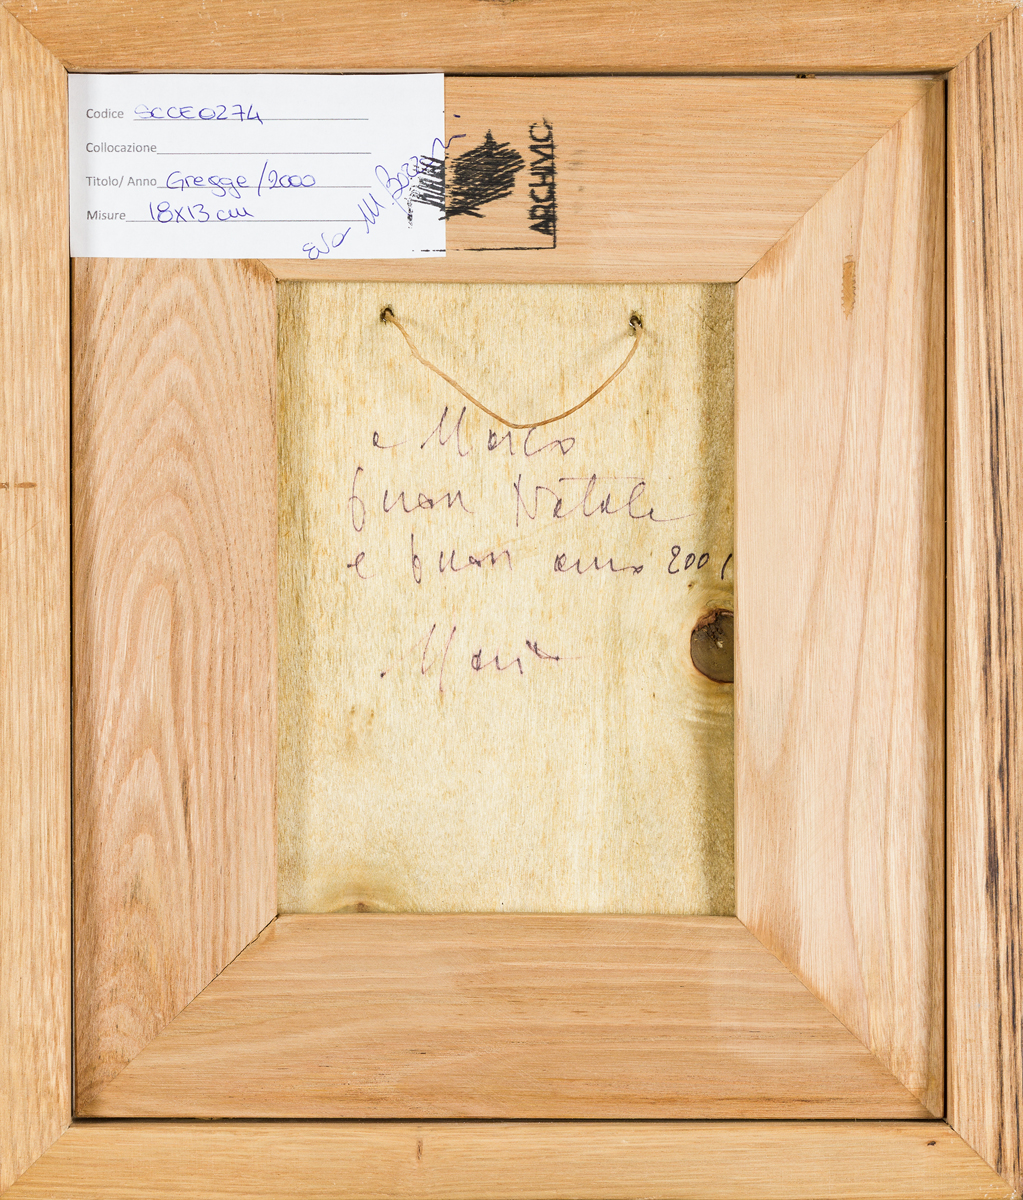 Codice SCCE0274
Collocazione
Titolo/ Anno Gregge/2000
Misure 18x13 cm
ARCHIVIO
a Marco
buon Natale
e buon anno 2001
Maria